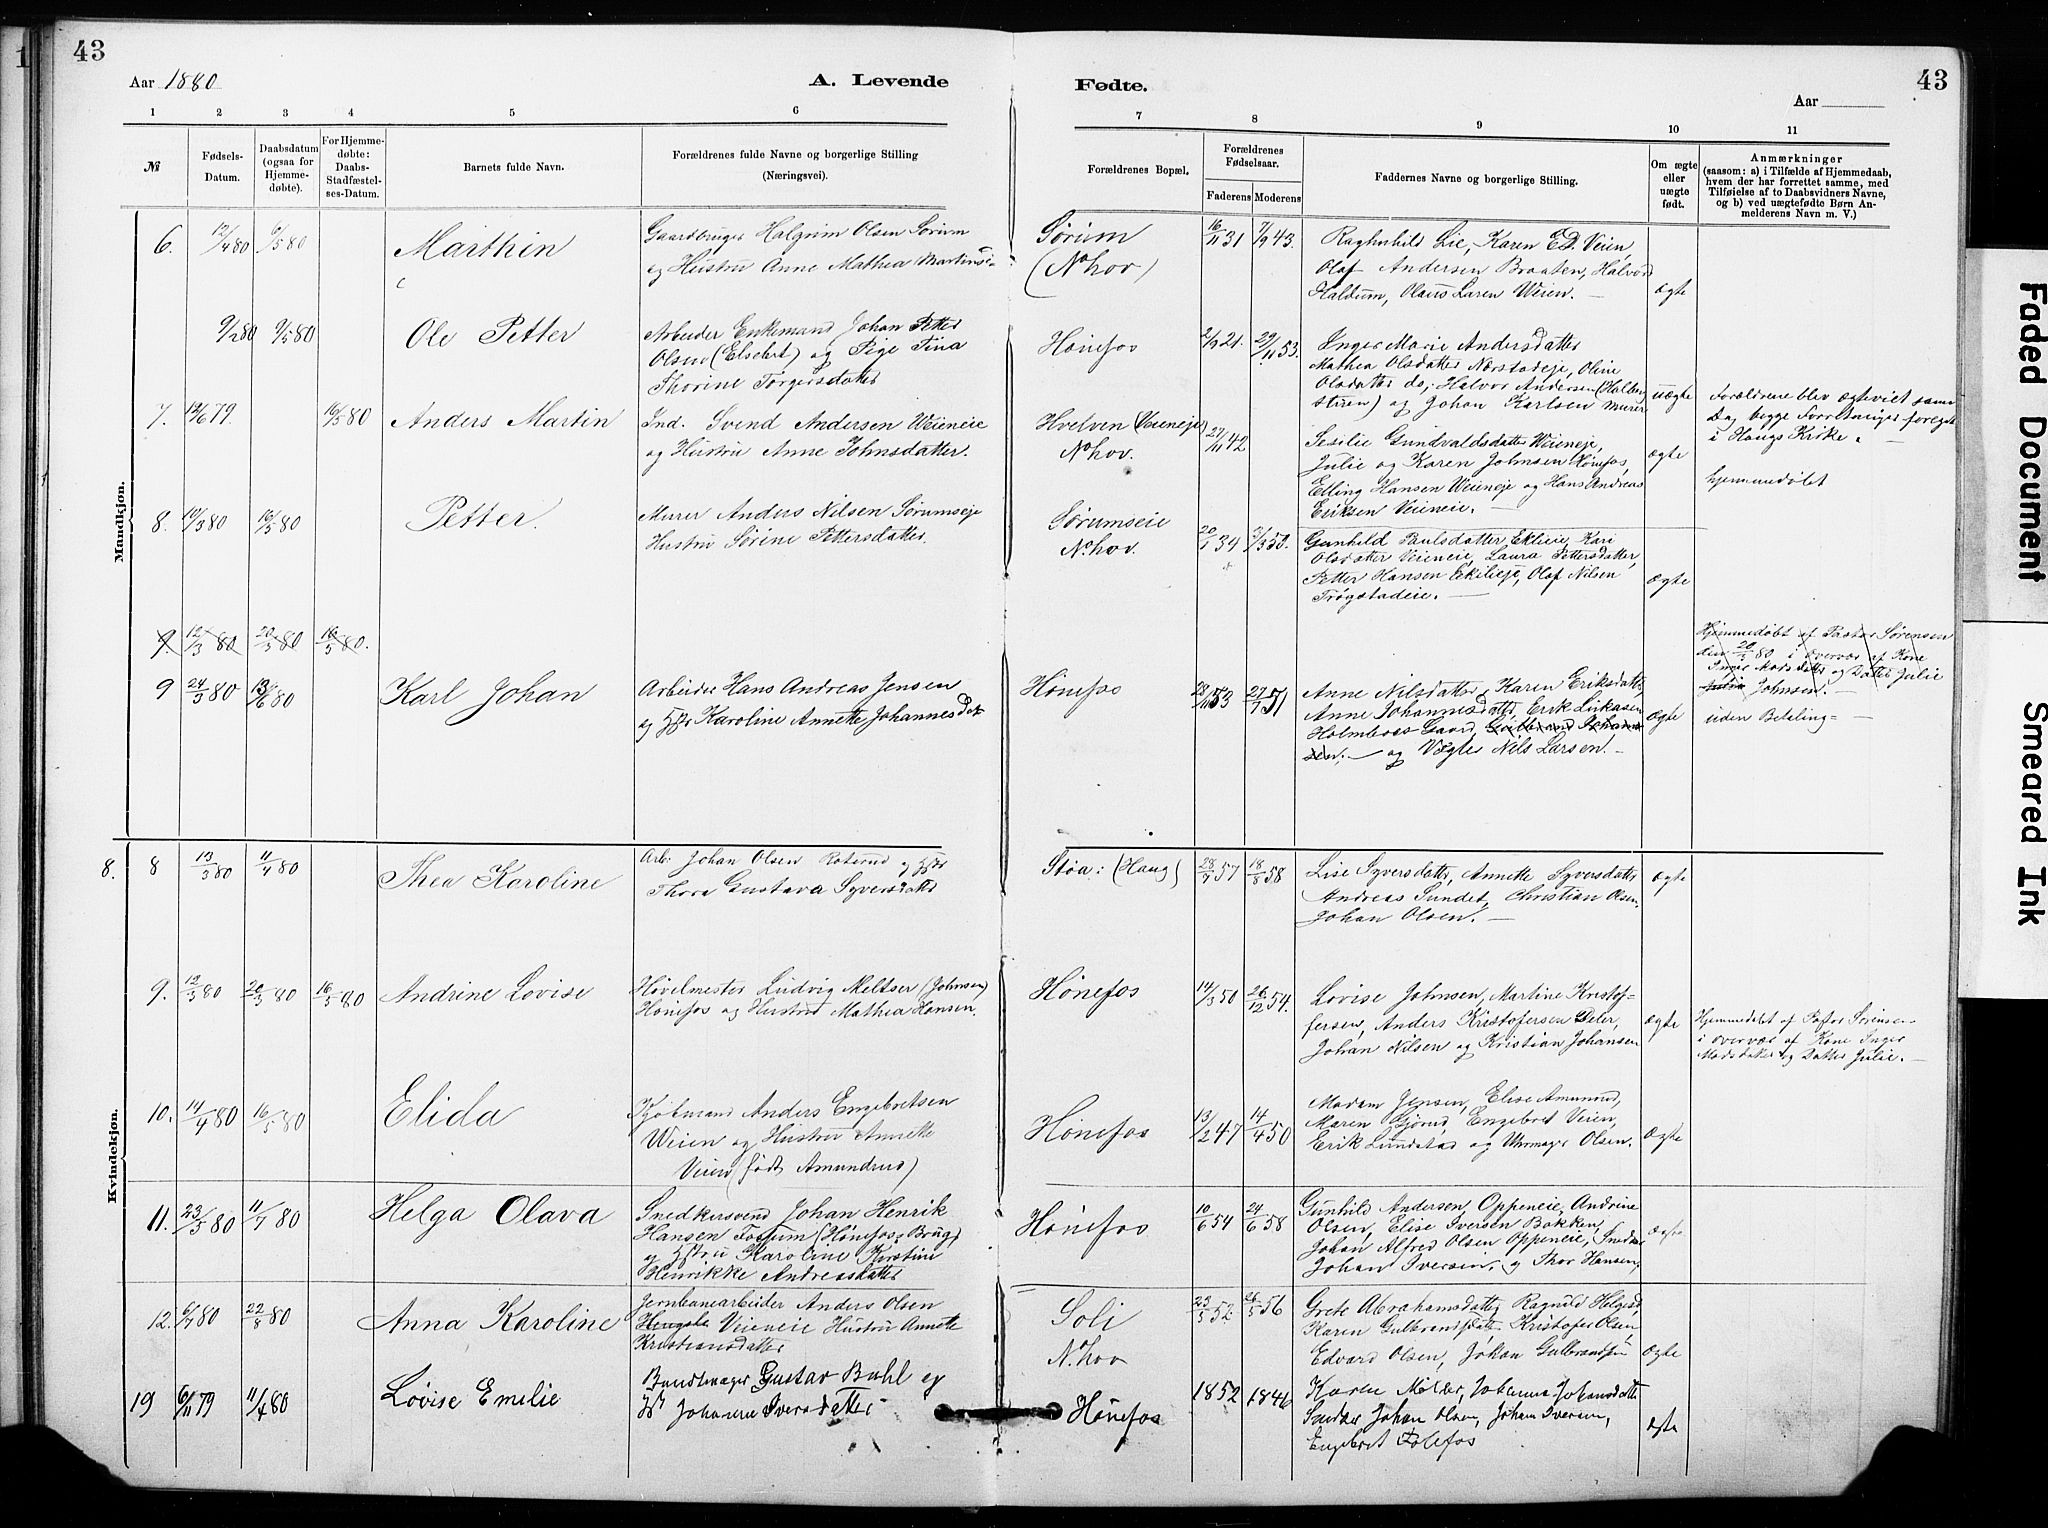 43
Aar 1880
A. Levende
Fødte.
Aar
43
1 2 3 4 5 6 7 8 9 10 11
№
Fødsels-
Datum.
Daabsdatum
(ogsaa for
Hjemme-
døbte).
For Hjemme-
døbte:
Daabs-
Stadfæstel-
ses-Datum.
Barnets fulde Navn.
Forældrenes fulde Navne og borgerlige Stilling
(Næringsvei).
Forældrenes Bopæl.
Forældrenes
Fødselsaar.
Faderens Moderens
Faddernes Navne og borgerlige Stilling.
Om ægte
eller
uægte
født.
Anmærkninger
(saasom: a) i Tilfælde af Hjemmedaab,
hvem der har forrettet samme, med
Tilføielse af to Daabsvidners Navne,
og b) ved uægtefødte Børn An-
melderens Navn m. V.)
Mandkjøn.
6. 12/4 80 6/5 80
Marthin
Gaardbruger Halgrim Olsen Sørum
og Hustru Anne Mathea Martinse-
Sørum
(N.hov)
16/11 31 7/9 43.
Raghnhild Lie, Karen E.D. Veien,
Olaf Andersen Braaten, Halvor
Haldum, Olaus Laren Weien.
ægte
9/2 80 9/5 80
Ole Petter
Arbeider Enkemand Johan Petter
Olsen (Elsebet) og Pige Tina
Thorine Torgersdatter
Hønefos
2/9 21. 29/11 53.
Inger Marie Andersdatter
Mathea Olsdatter Nærstadeje, Oline
Olsdatter do, Halvor Andersen (Halberg
stiren) og Johan Karlsen Murer
uægte
Forældrene blev ægteviet samme
Dag begge Forretninger foregik
i Haugs Kirke.
7. 12/6 79 16/5 80
Anders Martin
Ind. Svend Andersen Weieneie
og Hustru Anne Johnsdatter.
Hvelven (Veieneje)
N.hov.
27/11 42
Sesilie Gundvaldsdatter Weieneje,
Julie og Karen Johnsen Hønefos,
Elling Hansen Weieneje og Hans Andreas
Eriksen Veieneie.
ægte
hjemmedøbt
8. 10/3 80 16/5 80
Petter.
Murer Anders Nilsen Sørumseje
Hustru Sørine Pettersdatter.
Sørumseie
N.hov.
20/1 34 7/3 50.
Gunhild Paulsdatter Eklieie, Kari
Olsdatter Veieneie, Laura Pettersdatter,
Petter Hansen Eklieje, Olaf Nilsen
Trøgstadeie.
ægte
9. 12/3 80 20/3 80 16/5 80.
Hjemmedøbt af Pastor Sørensen
den 20/3 80 i overvær af Kone
Inger Madsdatter og Datter Julie
Johnsen.
9 24/3 80 13/6 80
Karl Johan
Arbeider Hans Andreas Jensen
og Hstr Karoline Annette Johannesdat
Hønefos
28/11 53 27/7 51
Anne Nilsdatter, Karen Eriksdatter
Anne Johannesdatter, Erik Lukasen
Holmboes Gaard, Gulbrand Johanne
sen, og Vægter Nils Larsen.
ægte
uden Betaling
Kvindekjøn.
8. 8 13/3 80 11/4 80
Thea Karoline
Arb. Johan Olsen Roterud og Hstr
Thora Gustava Syversdatter
Støa: (Haug)
28/7 57 18/8 58
Lise Syversdatter, Annette Syversdatter
Andreas Sundet, Christian Olsen,
Johan Olsen.
ægte
9. 12/3 80 20/3 80 16/5 80
Andrine Lovise
Høvelmester Ludvig Meltser (Johnsen)
Hønefos og Hustru Mathea Hansen.
Hønefos
14/3 50 26/12 54.
Lovise Johnsen, Martine Kristof-
fersen, Anders Kristofersen Deler,
Johan Nilsen og Kristian Johansen
ægte
Hjemmedøbt af Pastor Sørensen
i overvær af Kone Inger
Madsdatter og Datter Julie.
10. 14/4 80 16/5 80
Elida
Kjøbmand Anders Engebretsen
Weien og Hustru Annette
Veien (født Amundrud)
Hønefos
13/2 47 14/4 50
Madam Jensen, Elise Amunrud,
Maren Gjørud, Engebret Veien,
Erik Lundstad og Uhrmager Olsen.
ægte
11. 23/5 80 11/7 80
Helga Olava
Snedkersvend Johan Henrik
Hansen Fossum (Hønefos Brug)
og Hstru Karoline Kirstine
Henrikke Andreasdatter
Hønefos
10/6 54 24/6 58
Gunhild Andersen, Oppeneie, Andrine
Olsen, Elise Iversen Bakken,
Johan Alfred Olsen Oppeneie, Snedker
Johan Iversen, og Thor Hansen,
ægte
12. 6/7 80 22/8 80
Anna Karoline
Jernbanearbeider Anders Olsen
Veieneie Hustru Annette
Kristiansdatter
Soli
N.hov
23/5 52 26/5 56
Grete Abrahamsdatter, Ragnild Helgesd
Karen Gulbrandsdatter Kristofer Olsen,
Edvard Olsen, Johan Gulbrandsen
ægte
19 6/11 79 11/4 80
Lovise Emilie
Bundtmager Gustav Buhl og
Hst Johanne Iversdatter
Hønefos
1852 1846
Karen Møller, Johanna Johansdatter
Snedker Johan Olsen, Johan Iversen,
Engebret Follefos
ægte
Faded Document
Smeared Ink